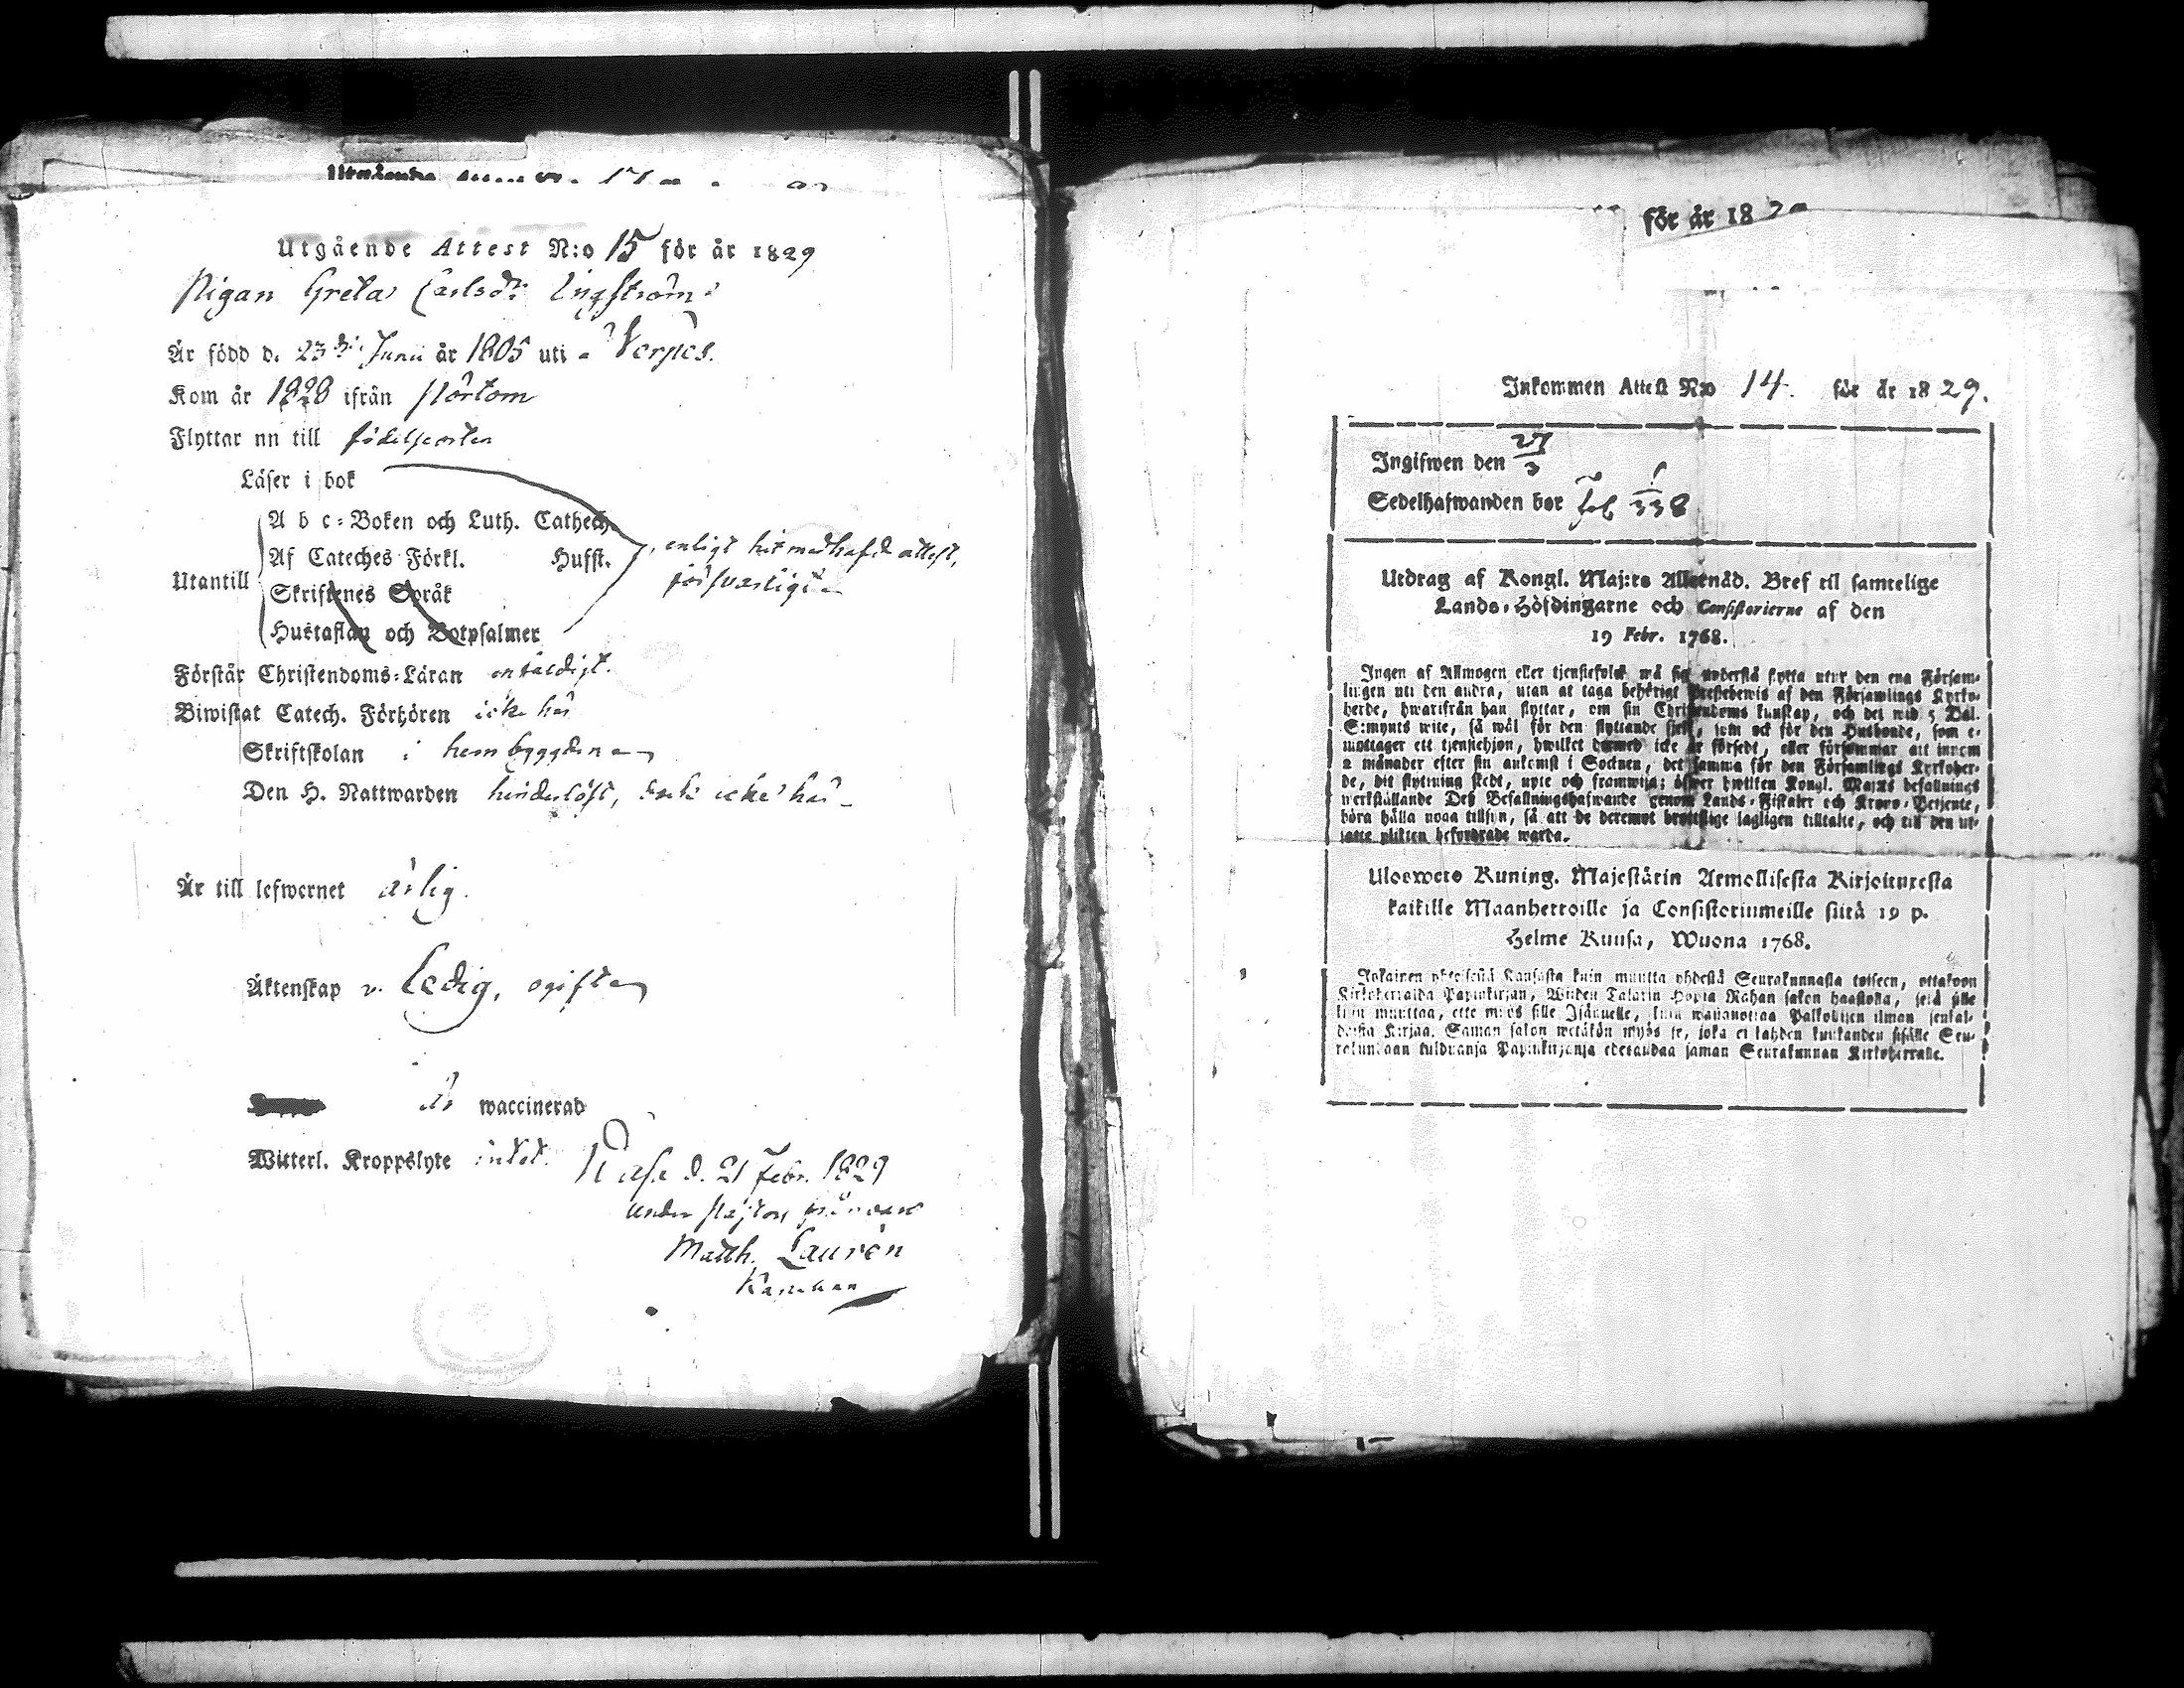 Utgående Attest N:o 15 för år 1829
Pigan Greta Carlsdr Engström
Är född d. 23 Junii år 1805 uti Nerpes.
Kom år 1828 ifrån Pörtom
Flyttar nn till födelseorten
Läser i bok
A b c-Boken och Luth. Catech.
Af Cateches Förkl. Hufst.
Utantill
Skriftenes Språk
Hustaflan och Botpsalmer
enligt hitmedhafd attest,
försvarligt
Förstår Christendoms-Läran enfaldigt.
Biwistat Catech. Förhören icke här
Skriftskolan i hembygden
Den H. Nattwarden hinderlöst, dock icke här
Är till lefwernet ärlig.
Äktenskap Ledig, ogift
är waccinerad
Witterl. Kroppslyte intet.
Wasa d. 21 Febr. 1829
under
Matth. Laurén
för år 18
Inkommen Attest N:o 14. för år 1829.
Ingifwen den 27/3
Sedelhafwanden bor fol 338
Utdrag af Kongl. Maj:ts Allernåd. Bref til samtelige
Lands-Höfdingarne och Consistorierne af den
19 Febr. 1768.
Ingen af Allmogen eller tjenstefolck må sig understå flytta utur den ena Försam-
lingen uti den andra, utan at taga behörigt Prestebewis af den Församlings Kyrko-
herde, hwarifrån han flyttar, om sin Christendoms kunskap, och det wid 5 Dal.
S:mynts wite, så wäl för den flyttande sielf, som ock för den Husbonde, som e-
mottager ett tjenstehjon, hwilket dermed icke är försedt, eller försummar att innom
2 månader efter sin ankomst i Socknen, det samma för den Församlings Kyrkoher-
de, dit flyttning skedt, upte och framwisa; öfwer hwilken Kongl. Maj:ts befallnings
werkställande Dess Befallningshafwande genom Lands-Fiskaler och Krono-Betjente,
böra hålla noga tillsyn, så att de deremot brottslige lagligen tilltalte, och till den ut-
satte plikten befordrade warda.
Uloswets Kuning. Majestätin Armollisesta Kirjoituxesta
kaikille Maanherroille ja Consistoriumeille siitä 19 p.
Helme Kuusa, Wuona 1768.
Jokainen yhteisestä Kansasta kuin muutta yhdestä Seurakunnasta toiseen, ottakoon
Kirkoherralda Papinkirjan, Wiiden Talarin Hopia Rahan sakon haastolla, sekä sille
kuin muuttaa, ette myös sille Isännelle, kuin wastanottaa Palkollisen ilman senkal-
daista Kirjaa. Saman sakon wetäkön myös se, joka ei kahden kuukauden sisälle Seu-
rakundaan tulduansa Papinkirjansa edesandaa saman Seurakunnan Kirkoherralle.